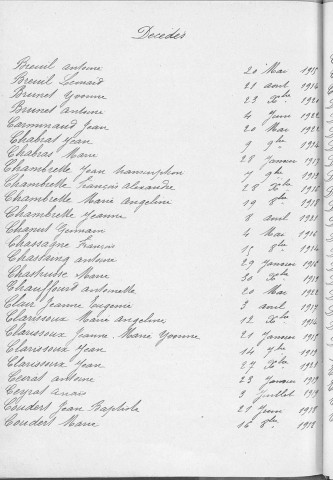 Décédés
Breuil Antoine 20 Mai 1915
Breuil Léonard 21 avril 1914
Brunet Yvonne 23 Xbre 1920
Brunet Antoine 4 Juin 1922
Carminaud Jean 20 Mai 1922
Chabras Jean 9 9bre 1914
Chabras Marie 28 Janvier 1917
Chambrette Jean 7 9bre 1919
Chambrette François Alexandre 28 Xbre 1916
Chambrette Marie Angeline 19 8bre 1918
Chambrette Jeanne 8 avril 1921
Chaput Germain 4 Mai 1916
Chassagne François 15 8bre 1914
Chastaing Antoine 29 Janvier 1916
Chastrusse Marie 30 Xbre 1919
Chauffour Antoinette 20 Mai 1922
Clair Jeanne Eugénie 3 avril 1919
Clarissoux Marie Angeline 12 Xbre 1914
Clarissoux Jeanne Marie Yvonne 21 Janvier 1917
Clarissoux Jean 14 9bre 1919
Clarissoux Jean 27 Xbre 1921
Ceyrat Antoine 23 Janvier 1919
Ceyrat Anaïs 3 Juillet 1919
Coudert Jean Baptiste 21 Juin 1918
Coudert Marie 16 8bre 1918